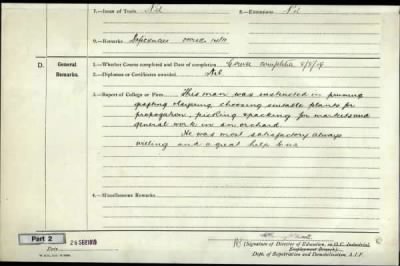 7.—Issue of Tools. Nil
8.—Extensions Nil
9.—Remarks
D. General Remarks.
1.—Whether Course completed and Date of completion Course completed 5/8/19
2.—Diplomas or Certificates awarded Nil
3.—Report of College or Firm. This man was instructed in pruning
grafting choosing suitable plants for
propogation, picking & packing for markets and
general work in an orchard.
He was most satisfactory always
willing and a great help to us
4.—Miscellaneous Remarks.
Part 2
Date 26 SEP 1919
(Signature of Director of Education, or O.C. Industrial
Employment Branch).
Dept. of Repatriation and Demobilisation, A.I.F.